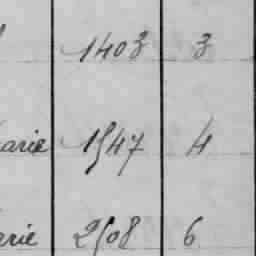 1403 3
arie 1547 4
erie 2508 6